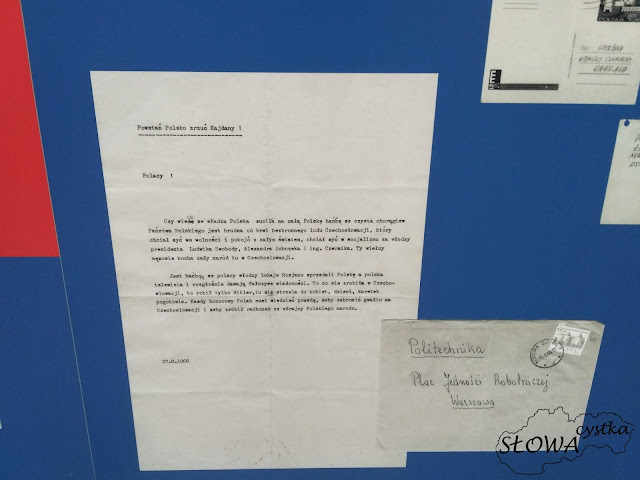 Powstań Polsko zrzuć Kajdany !
Polacy !
Czy wiecie że władza Polska suciła na całą Polskę hańbę że czysta chorągiew
Państwa Polskiego jest brudna od krwi bezbronnego ludu Czechosłowacji, który
chciał żyć we wolności i pokoju z całym światem, chciał żyć w socjalizmu za włodzy
presidenta Ludwika Swobody, Alexandra Dubczeka i ing. Czernika. Ty wielmy
mężowie kocha cały naród tu w Czechosłowacji.
Jest hańbą, że polscy włodzy lokaje Rosjanów sprzedali Polskę a polska
telewizia i rozgłośnie dawają fałszywe wiadomości. To co się zrobiła w Czecho-
słowacji, to robił tylko Hitler, tu się strzela do kobiet, dzieci, karetek
pogotowia. Każdy honorowy Polak musi wiedzieć prawdę, żeby zabronić gwałtu na
Czechosłowacji i żeby zrobił rachunek za zdrajcy Polskiego narodu.
27.8.1968
Politechnika
Plac Jedności Robotniczej
Warszawa
WARSZAWA
SŁOWAcystka